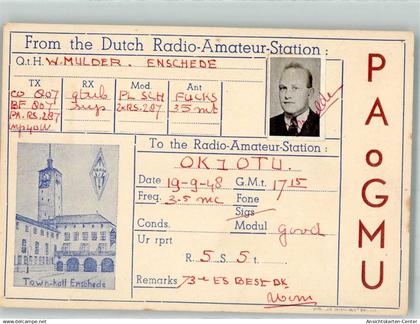 From the Dutch Radio-Amateur-Station :
Q.t.H. W. MULDER. ENSCHEDE
TX RX Mod. Ant
CO 807 PL SCH FUCKS
BF 807 2xRS.287 35 mt
PA. RS.287
PAoGMU
To the Radio-Amateur-Station :
OK1OTU.
Date 19-9-48 G.M.t. 1715
Freq. 3.5 mc Fone
Sigs
Conds. Modul good
Ur rprt
R. 5 S. 5 t.
Remarks 73-es BEST DX
Wim
Town-hall Enschede
Ansichtskarten-Center